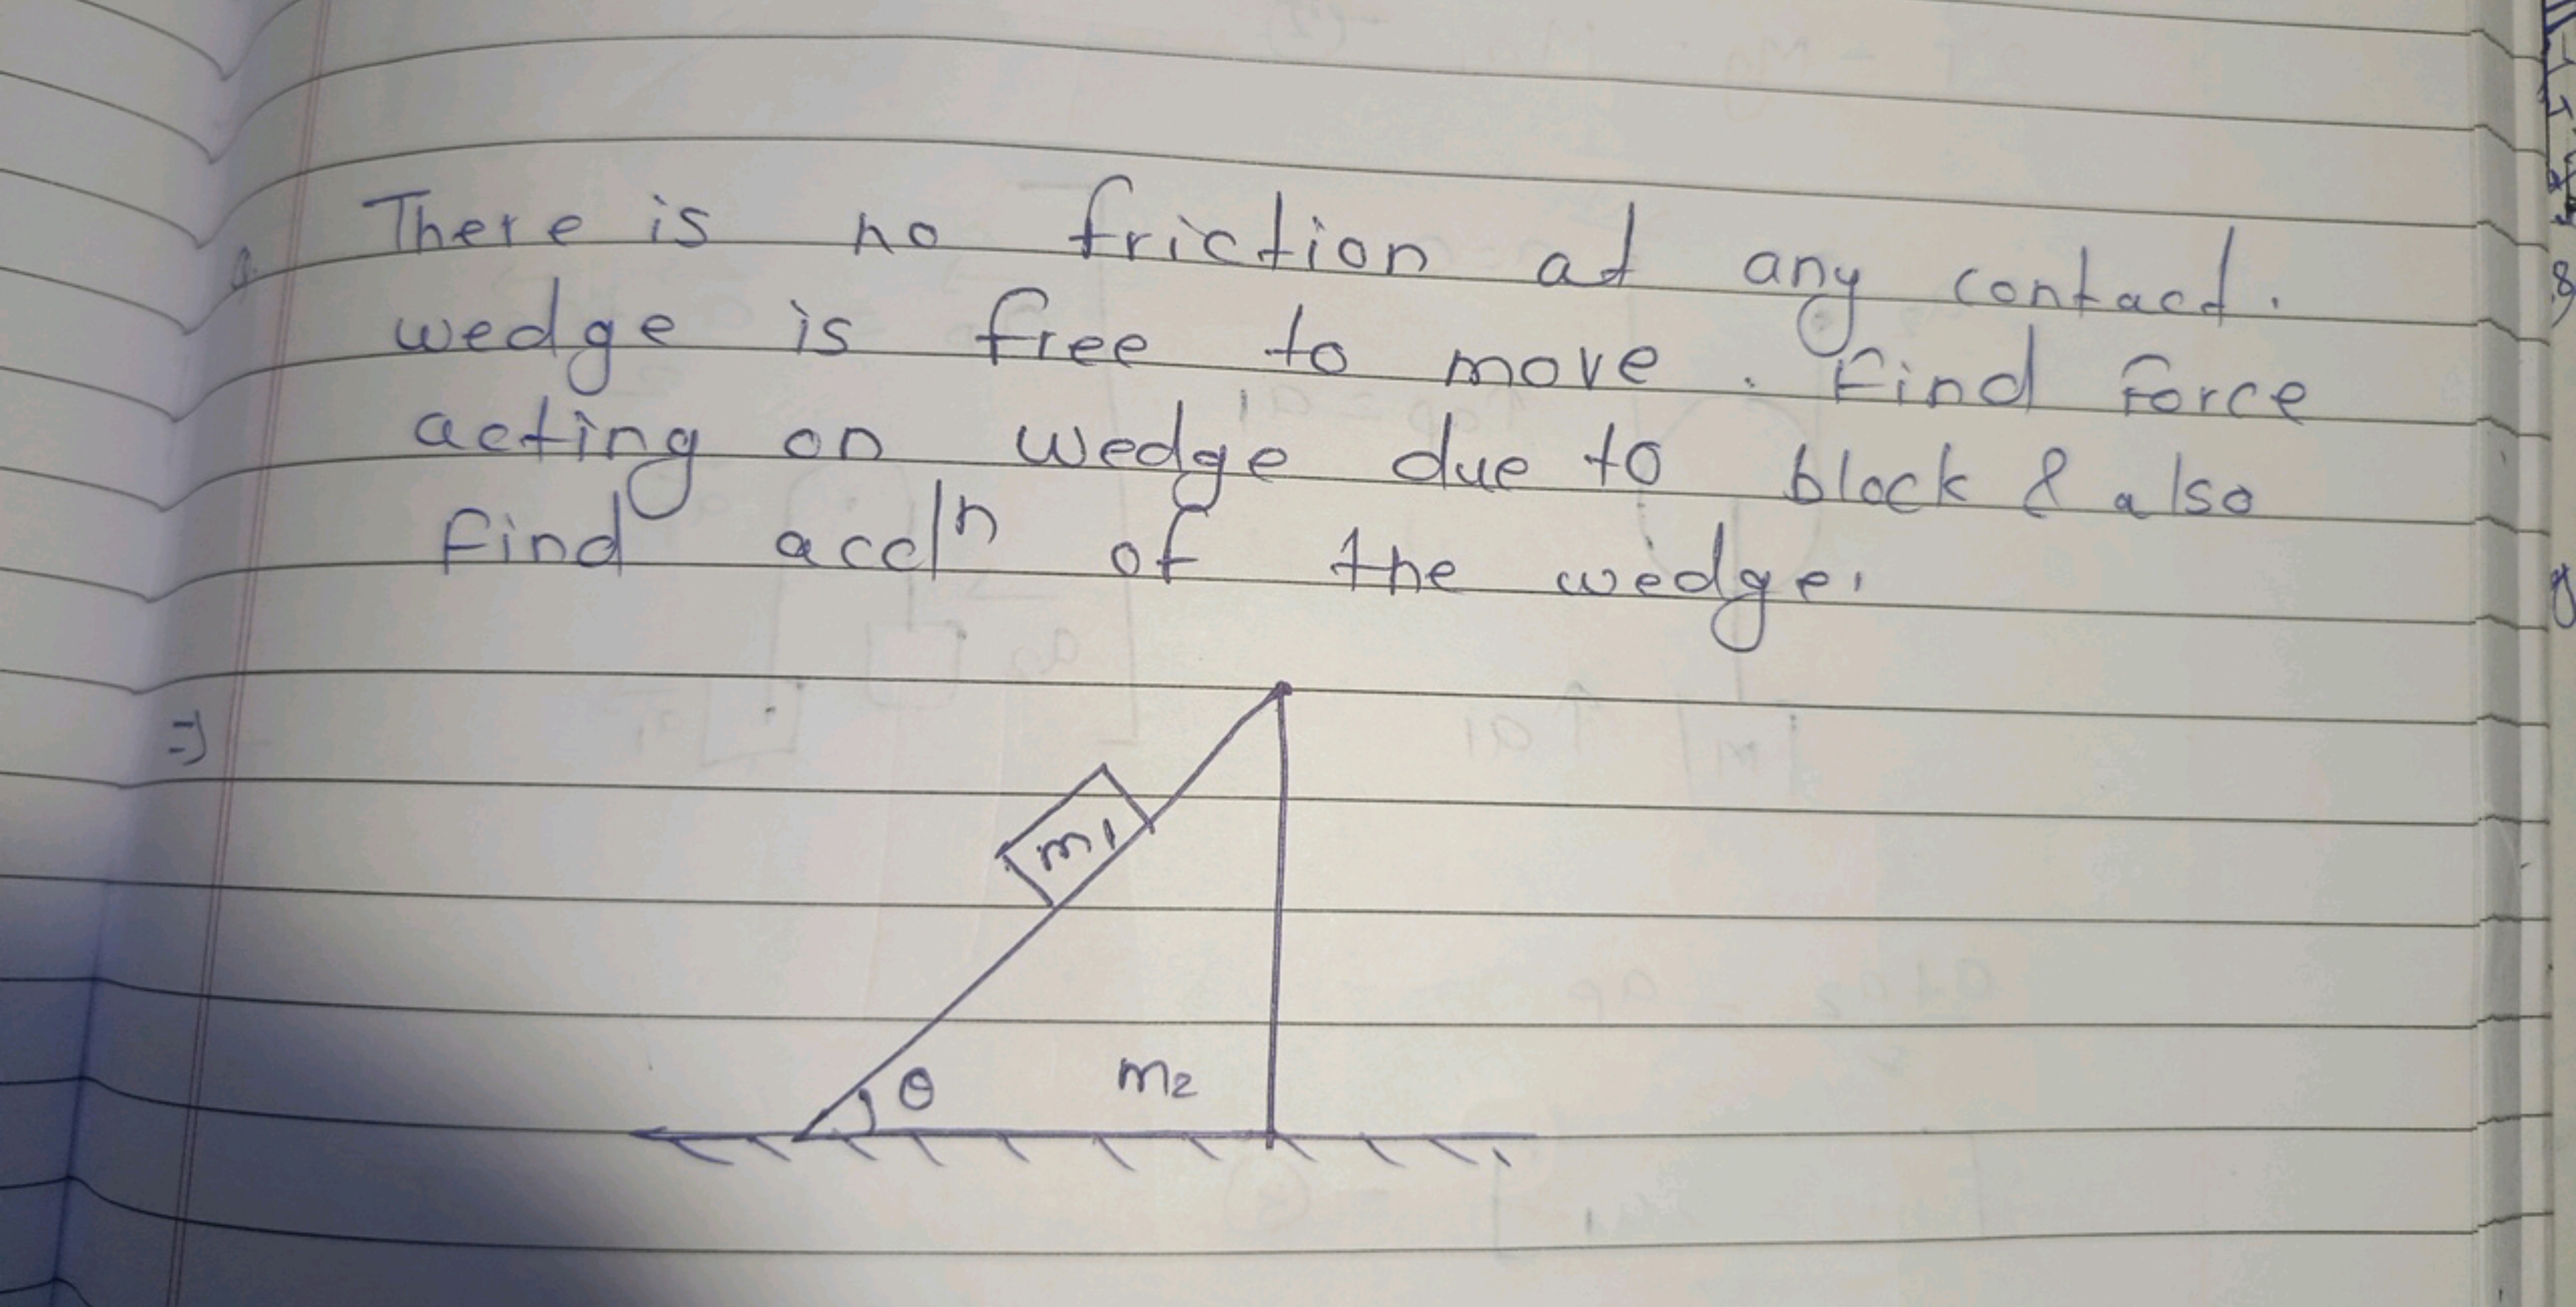 There is no friction at any contact.
wedge is free to move. Find Force
acting on wedge due to block & also
find accln of the wedge.
=)
m1
θ m2